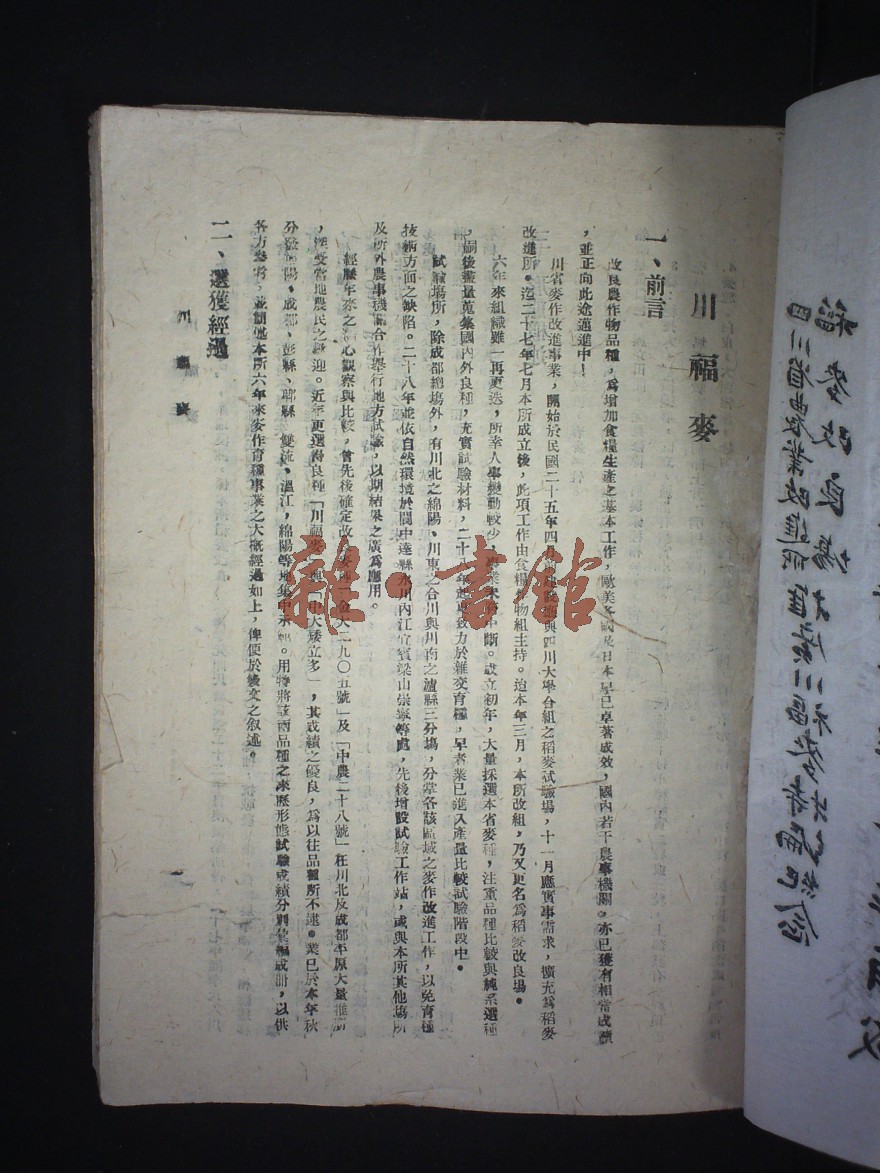 川福麥
一、前言
改良農作物品種，爲增加食糧生產之基本工作，歐美各國及日本早已卓著成效，國内若干農事機關，亦已獲有相當成績
，並正向此途邁進中！
川省麥作改進事業，開始於民國二十五年四月前建設廳與四川大學合組之稻麥試驗場，十一月應實事需求，擴充爲稻麥
改進所。迄二十七年七月本所成立後，此項工作由食糧作物組主持。迨本年三月，本所改組，乃又更名爲稻麥改良場。
六年來組織雖一再更迭，所幸人事變動較少，事業未嘗中斷。成立初年，大量採選本省麥種，注重品種比較與純系選種
，嗣後盡量蒐集國内外良種，充實試驗材料，二十八年起更致力於雜交育種，早者業已進入產量比較試驗階段中。
試驗場所，除成都總場外，有川北之綿陽、川東之合川與川南之瀘縣三分場，分掌各該區域之麥作改進工作，以免育種
技術方面之缺陷。二十八年並依自然環境於閬中達縣永川内江宜賓梁山崇寧等處，先後增設試驗工作站，或與本所其他場所
及所外農事機關合作舉行地方試驗，以期結果之廣爲應用。
經歷年來之細心觀察與比較，曾先後確定改良麥種「金大二九〇五號」及「中農二十八號」在川北及成都平原大量推廣
，深受當地農民之歡迎。近年更選得良種「川福麥」與「中大矮立多」，其成績之優良，爲以往品種所不逮。業已於本年秋
分發綿陽、成都、彭縣、郫縣 雙流、溫江，綿陽等地集中示範。用特將該兩品種之來歷形態試驗成績分別彙編成册，以供
各方參考，並簡述本所六年來麥作育種事業之大概經過如上，俾便於後文之叙述。
二、選獲經過
川福麥
稻麥改良場
四川省農業改進所
雜·書館